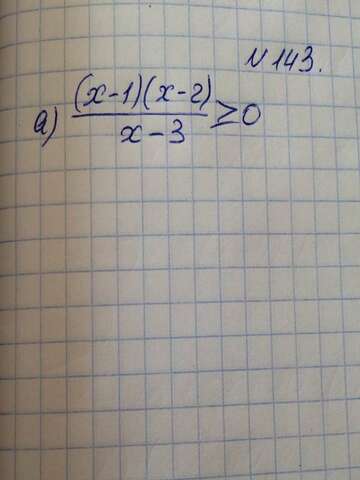 N 143.
а) (x-1)(x-2)/x-3 ≥0